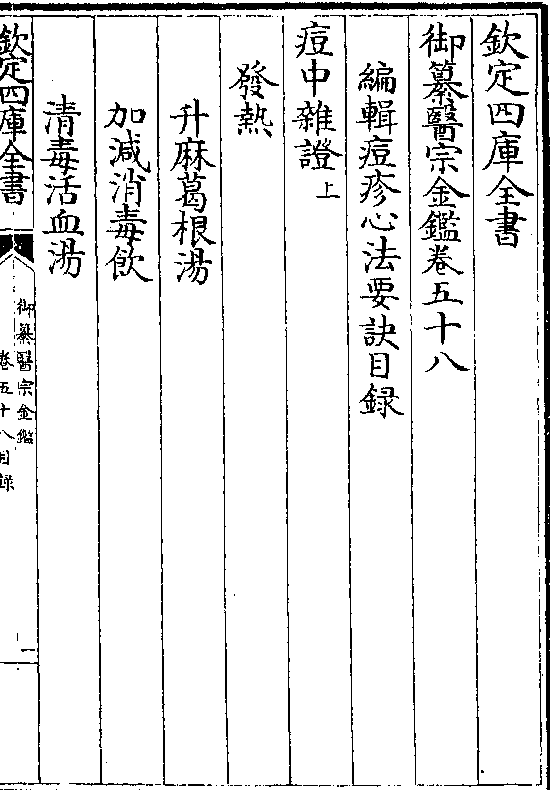 欽定四庫全書
御纂醫宗金鑑卷五十八
編輯痘疹心法要訣目録
痘中雜證上
發熱
升麻葛根湯
加減消毒飲
清毒活血湯
欽定四庫全書
御纂醫宗金鑑
卷五十八目録
一